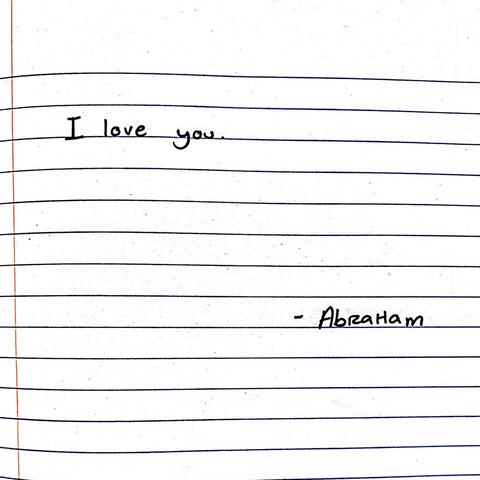 I love you.
- Abraham